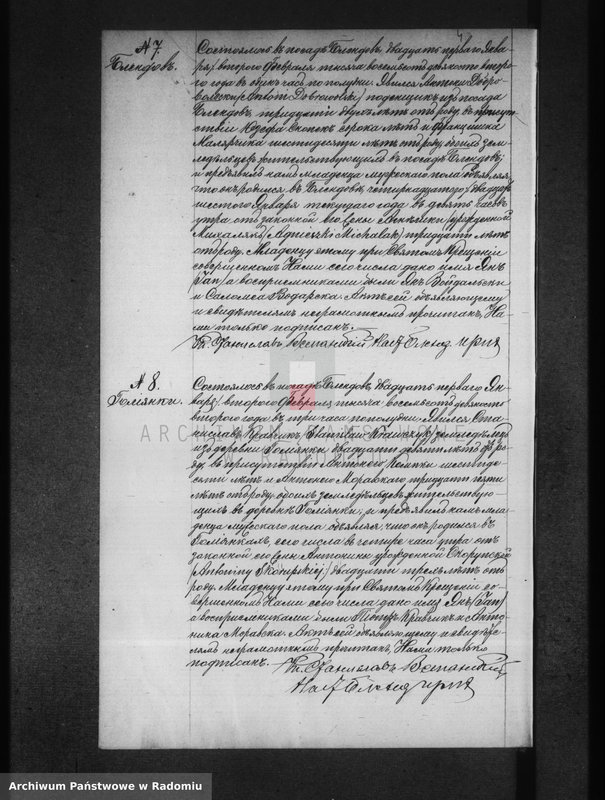 N 7.
Блендовъ.
Состоялось въ посадѣ Блендовѣ, двадцать перваго Янва-
ря) втораго Февраля тысяча восемьсотъ девяносто второ-
го года въ часъ по полудни. Явился Антонъ Добро-
вольскій (Antoni Dobrowolski) поденщикъ изъ посада
Блендовъ, тридцати двухъ лѣтъ отъ роду, въ присут-
ствіи Іосифа сорока лѣтъ и Францишка
шестидесяти лѣтъ отъ роду, обоихъ зем-
ледѣльцевъ жительствующихъ въ посадѣ Блендовѣ;
и предъявилъ намъ младенца мужескаго пола объявляя,
что онъ родился въ Блендовѣ, четырнадцатаго (двадцать
шестого Января текущаго года въ девять часовъ
утра отъ законной его жены Агнѣшки урожденной
Михалякъ (Agnieszki Michalak) тридцати лѣтъ
отъ роду. Младенцу этому при Святомъ Крещеніи
совершенномъ Нами сего числа дано имя Янъ
(Jan) а воспріемниками были Янъ
и Саломея Актъ сей объявляющему
и свидѣтелямъ неграмотнымъ прочитанъ, На-
ми только подписанъ.
Кс. Станиславъ
N 8.
Голянки.
Состоялось въ посадѣ Блендовѣ, двадцать перваго Ян-
варя) втораго Февраля тысяча восемьсотъ девяносто
второго года въ три часа пополудни. Явился Ста-
ниславъ Кравчикъ (Stanisław Krawczyk) земледѣлецъ
изъ деревни Голянки двадцати девяти лѣтъ отъ ро-
ду, въ присутствіи Антонія шестиде-
сяти лѣтъ и Антонія Моравскаго тридцати пяти
лѣтъ отъ роду, обоихъ земледѣльцевъ жительствую-
щихъ въ деревнѣ Голянки; и предъявилъ намъ мла-
денца мужескаго пола объявляя, что онъ родился въ
Голянкахъ, сего числа въ четыре часа утра отъ
законной его жены Антонины урожденной
(Antoniny) двадцати трехъ лѣтъ отъ
роду. Младенцу этому при Святомъ Крещеніи со-
вершенномъ Нами сего числа дано имя Янъ (Jan)
а воспріемниками были Петръ Кравчикъ и Анто-
нина Моравска. Актъ сей объявляющему и свидѣте-
лямъ неграмотнымъ прочитанъ, Нами только
подписанъ. Кс. Станиславъ
ARCHIWUM PAŃSTWOWE
W RADOMIU
Archiwum Państwowe w Radomiu